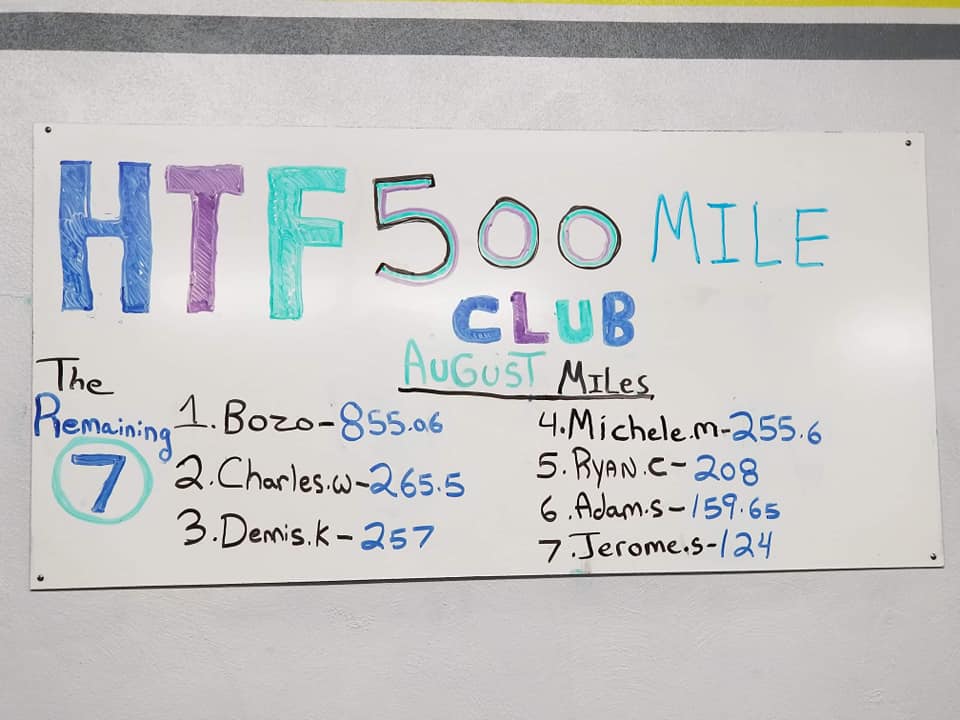 HTF 500 MILE
CLUB
AUGUST MILes
The
Remaining
7
1. Bozo-855.06
2. Charles.w-265.5
3. Dennis.k-257
4. Michele.m-255.6
5. RYAN.C-208
6. Adam.s-159.65
7. Jerome.s-124